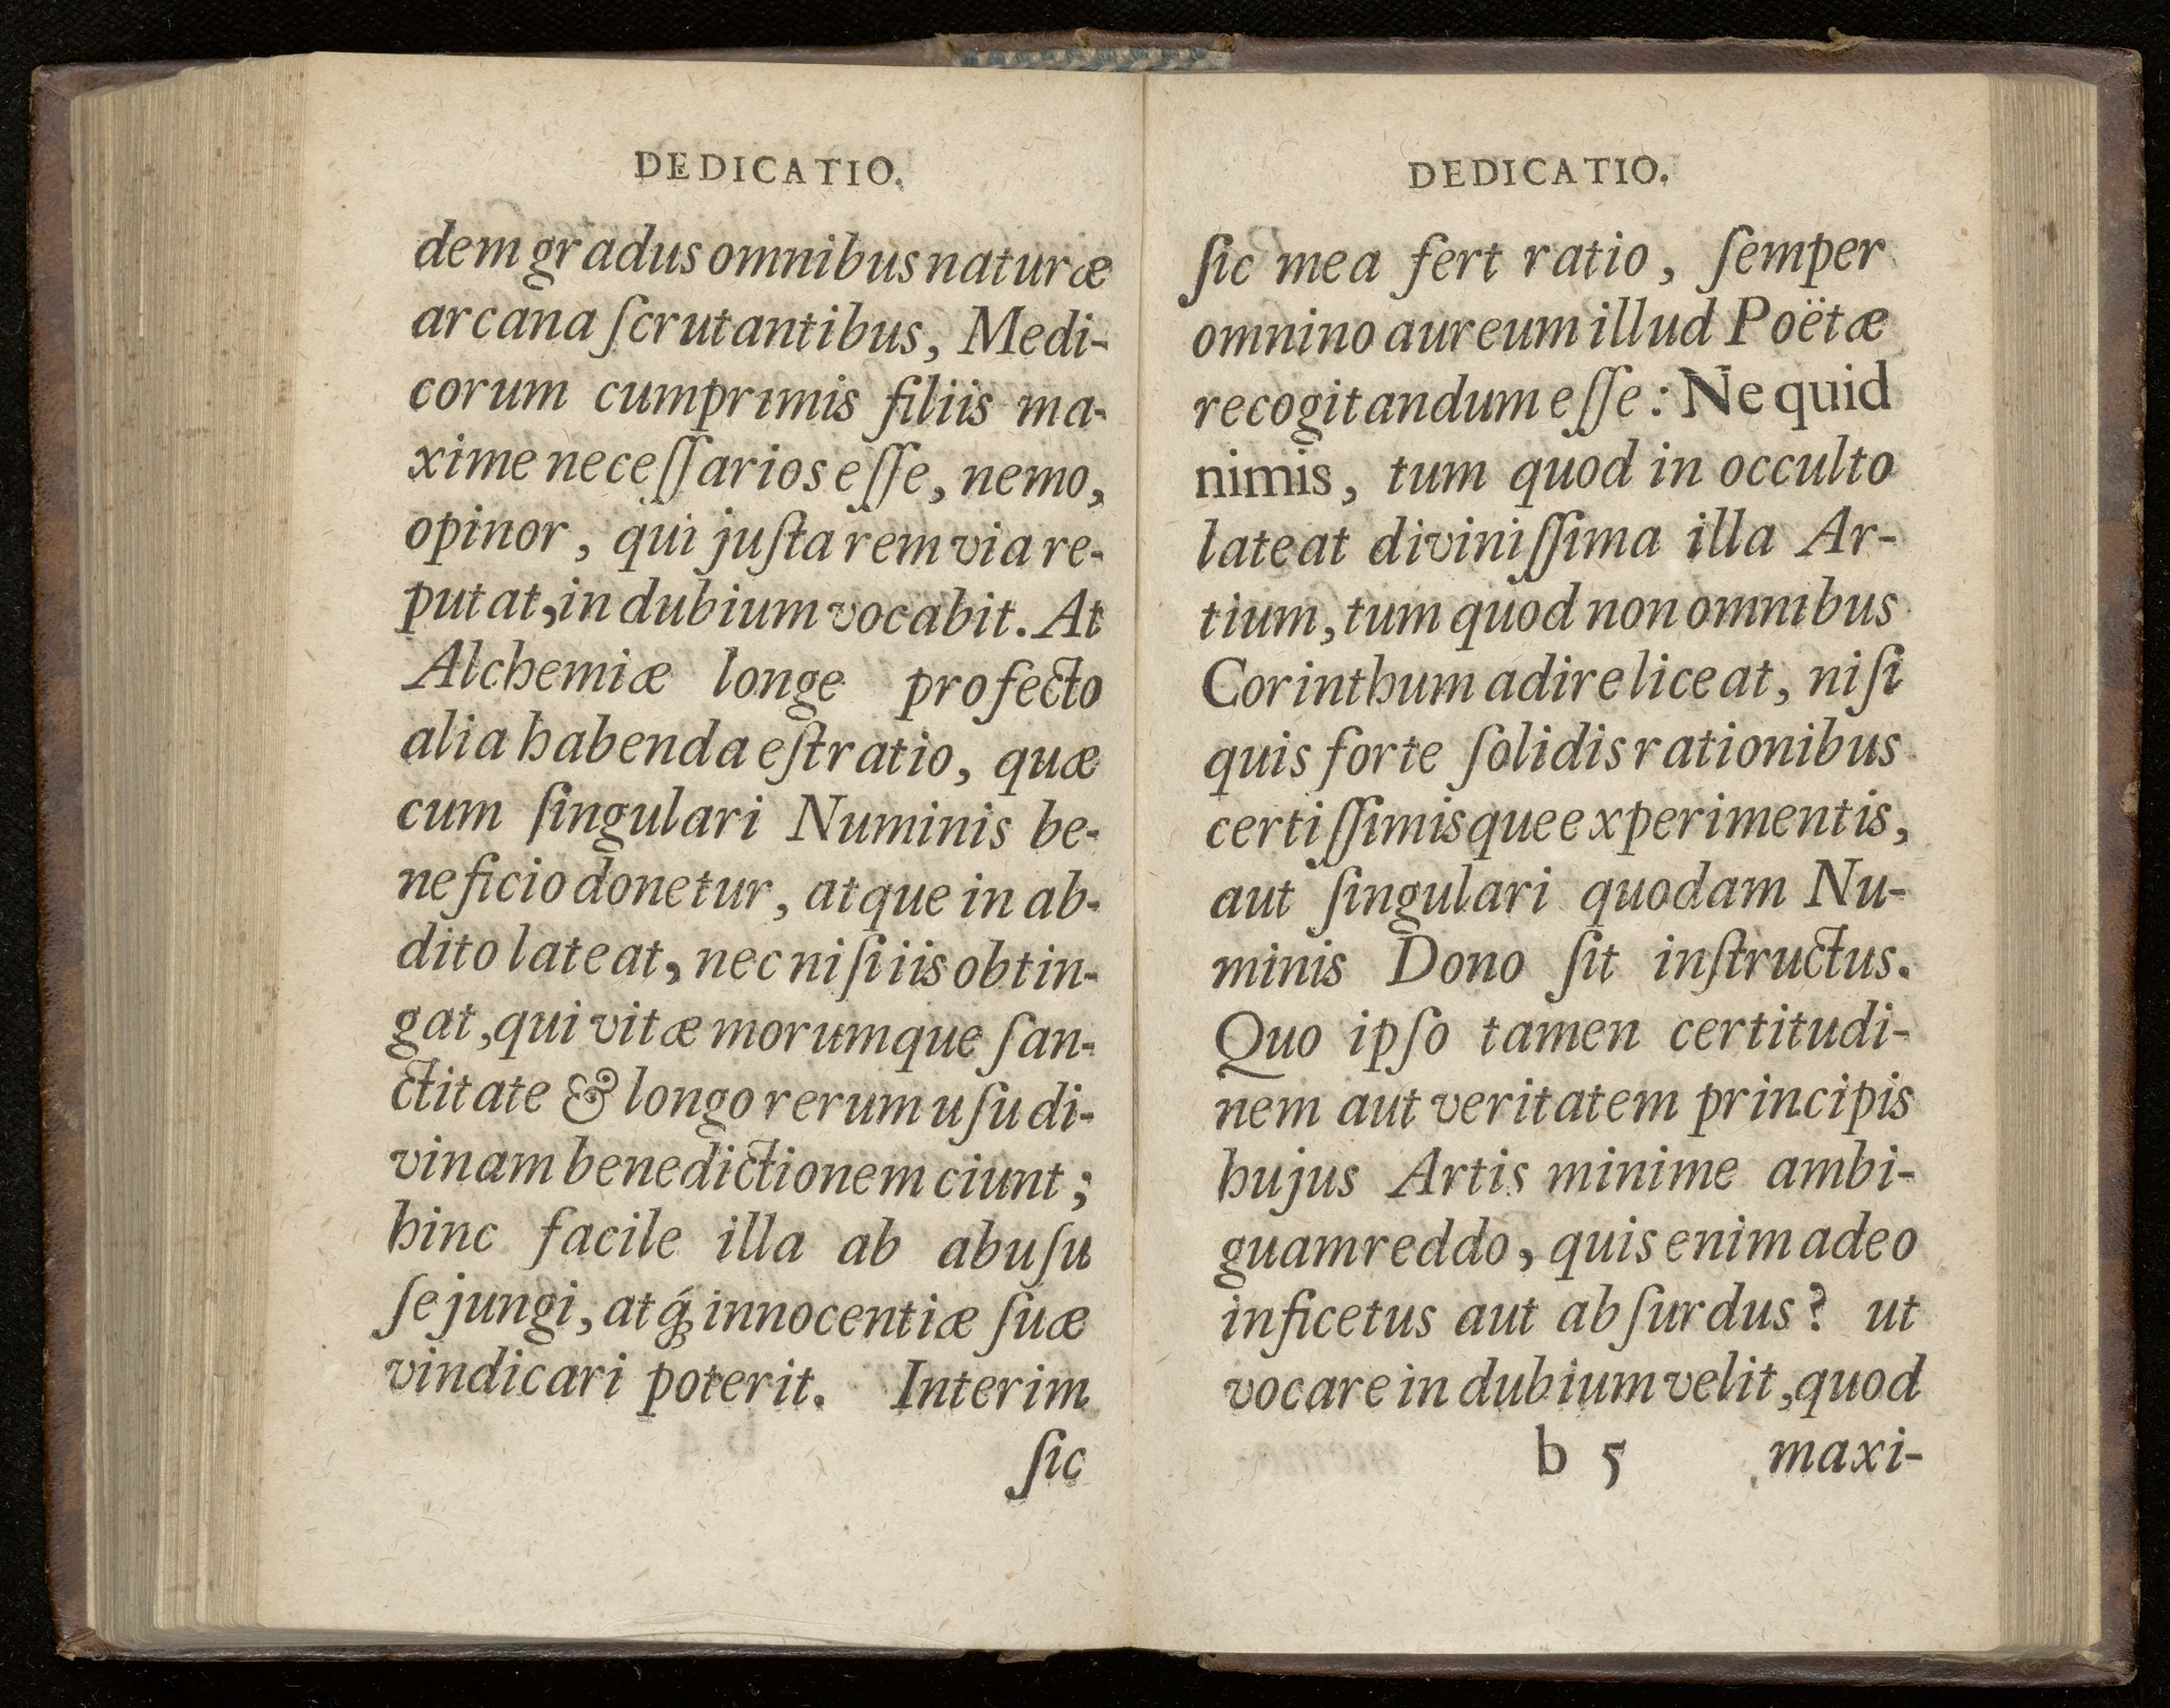 DEDICATIO.
dem gradus omnibus naturæ
arcana ſcrutantibus, Medi-
corum cumprimis filiis ma-
xime neceſſarios eſſe, nemo,
opinor, qui juſta rem via re-
putat, in dubium vocabit. At
Alchemiæ longe profecto
alia habenda eſt ratio, quæ
cum ſingulari Numinis be-
neficio donetur, atque in ab-
dito lateat, nec niſi iis obtin-
gat, qui vitæ morumque ſan-
ctitate & longo rerum uſu di-
vinam benedictionem ciunt;
hinc facile illa ab abuſu
ſejungi, atq́; innocentiæ ſuæ
vindicari poterit. Interim
ſic
DEDICATIO.
ſic mea fert ratio, ſemper
omnino aureum illud Poëtæ
recogitandum eſſe: Ne quid
nimis, tum quod in occulto
lateat diviniſſima illa Ar-
tium, tum quod non omnibus
Corinthum adire liceat, niſi
quis forte ſolidis rationibus
certiſſimisque experimentis,
aut ſingulari quodam Nu-
minis Dono ſit inſtructus.
Quo ipſo tamen certitudi-
nem aut veritatem principis
hujus Artis minime ambi-
guam reddo, quis enim adeo
inficetus aut abſurdus? ut
vocare in dubium velit, quod
b 5 maxi-